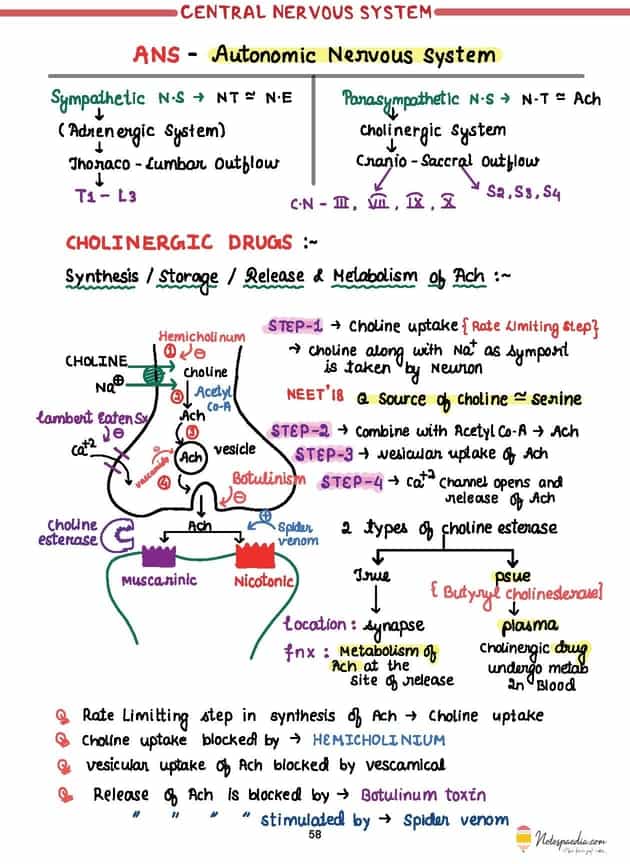 CENTRAL NERVOUS SYSTEM
ANS - Autonomic Nervous System
Sympathetic N.S → NT ≃ N.E
(Adrenergic System)
Thoraco - Lumbar Outflow
T1 - L3
Parasympathetic N.S → N-T ≃ Ach
Cholinergic System
Cranio - Saccral Outflow
C.N - III, VII, IX, X
S2, S3, S4
CHOLINERGIC DRUGS :~
Synthesis / Storage / Release & Metabolism of Ach :~
Hemicholinum
① ⊖
CHOLINE
Na⊕
Choline
② Acetyl
Co-A
Ach
③
Lambert Eaten Sx
⊖
Ca+2
vescamical
⊖
Ach
vesicle
④
Botulinism
⊖
Ach
Choline
esterase
⊕
Spider
venom
Muscarinic
Nicotonic
STEP-1 → Choline uptake {Rate Limiting Step}
→ choline along with Na+ as symport
is taken by Neuron
NEET'18 Q Source of choline ≃ serine
STEP-2 → Combine with Acetyl Co-A → Ach
STEP-3 → vesicular uptake of Ach
STEP-4 → Ca+2 Channel opens and
release of Ach
2 types of choline esterase
True
Location : synapse
fnx : Metabolism of
Ach at the
site of release
psue
{Butyryl cholinesterase]
plasma
Cholinergic drug
undergo metab
In Blood
Q Rate Limitting step in synthesis of Ach → Choline uptake
Q Choline uptake blocked by → HEMICHOLINIUM
Q vesicular uptake of Ach blocked by vescamical
Q Release of Ach is blocked by → Botulinum toxin
" " " " stimulated by → Spider venom
58
Notespaedia.com